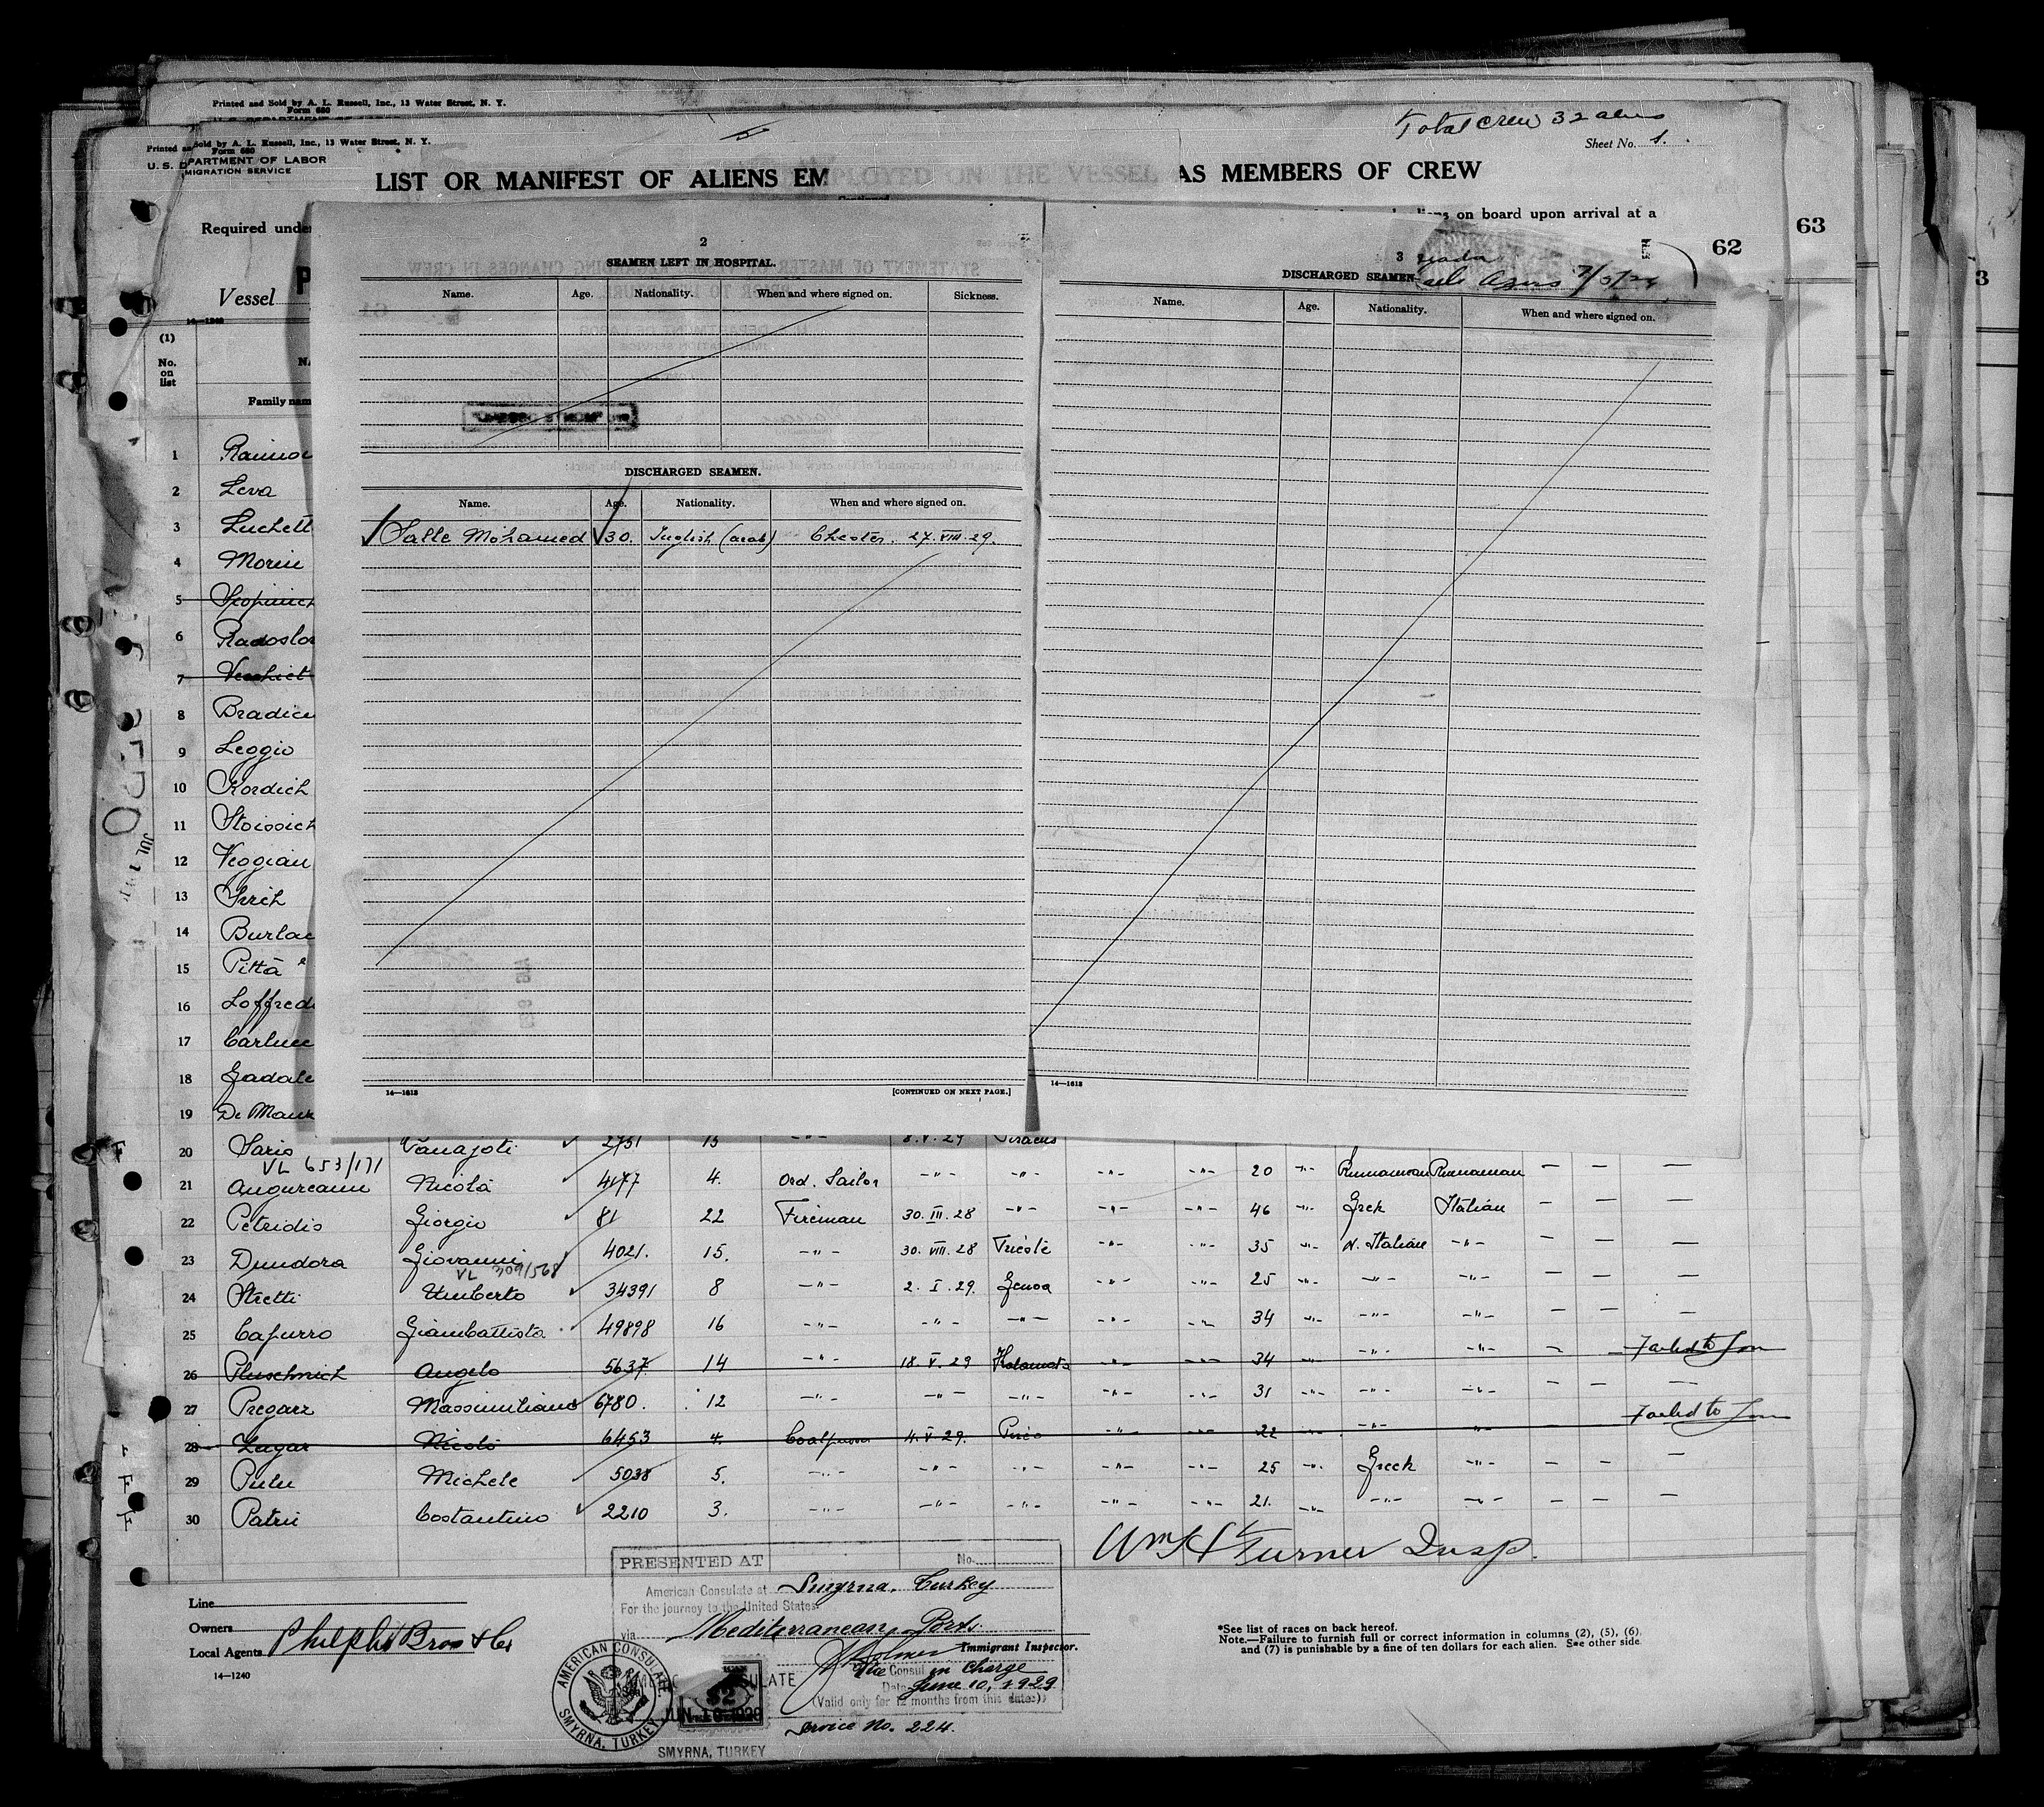 Printed and Sold by A. L. Russell, Inc., 13 Water Street, N. Y.
Form 680
Total Crew 32 aliens
Printed and Sold by A. L. Russell, Inc., 13 Water Street, N. Y.
Form 680
Sheet No. 1.
U. S. DEPARTMENT OF LABOR
MIGRATION SERVICE
LIST OR MANIFEST OF ALIENS EMPLOYED ON THE VESSEL AS MEMBERS OF CREW
Required under
aliens on board upon arrival at a
62
63
3
Vessel
14—1240
(1)
No. on list
Family name
2
SEAMEN LEFT IN HOSPITAL.
Name. Age. Nationality. When and where signed on. Sickness.
DISCHARGED SEAMEN.
Name. Age. Nationality. When and where signed on.
Salle Mohamed 30. Inglish (arab) Chester. 27.VIII.29.
14—1613
[CONTINUED ON NEXT PAGE.]
3
DISCHARGED SEAMEN
Name. Age. Nationality. When and where signed on.
14—1613
1
2 Leva
3 Luchett
4 Morin
5
6 Radoslo
7
8 Bradic
9 Leggio
10 Kordich
11 Stoissich
12 Veggian
13
14 Burlac
15 Pittà
16 Loffred
17 Carlucc
18 Gadale
19 De Maur
20 Saris Panajoti 2751 15 -"- 8.V.29 Piraeus
VL 653/171
21 Angureanu Nicolà 4177 4. Ord. Sailor -"- -"- -"- -"- 20 -"- Rumanian Rumanian — — —
22 Petridis Giorgio 81 22 Fireman 30.III.28 -"- -"- -"- 46 -"- Grek Italian — — —
23 Dundora Giovanni 4021. 15. -"- 30.VIII.28 Trieste -"- -"- 35 -"- N. Italian -"- — — —
VL 309/568
24 Stretti Umberto 34391 8 -"- 2.I.29. Genoa -"- -"- 25 -"- -"- -"- — — —
25 Capurro Giambattista 49898 16 -"- -"- -"- -"- -"- 34 -"- -"- — — —
26 Pluschnich Angelo 5637. 14 -"- 18.V.29 Kalamata -"- -"- 34 -"- -"- -"- — — Failed to Join
27 Pregarz Massimiliano 6780. 12 -"- -"- -"- -"- -"- 31 -"- -"- -"- — — —
28 Zugar Nicolò 6453 4. Coalpasser 4.V.29. -"- -"- 22 -"- " Failed to Join
F 29 Pulu Michele 5038 5. -"- -"- -"- -"- -"- 25 -"- Greek -"- — — —
F 30 Patrii Costantino 2210 3. -"- -"- -"- -"- -"- 21. -"- -"- -"- — — —
Wm H Turner Insp.
PRESENTED AT
No.
American Consulate at Smyrna, Turkey
For the journey to the United States
via Mediterranean Ports.
Immigrant Inspector.
Vice Consul in Charge
Date June 10, 1929
(Valid only for 12 months from this date.)
Service No. 224.
Line
Owners
Local Agents Phelphs Bros & Co
14—1240
AMERICAN CONSULATE
SMYRNA, TURKEY
$2
JUN 10 1929
SMYRNA, TURKEY
*See list of races on back hereof.
Note.—Failure to furnish full or correct information in columns (2), (5), (6),
and (7) is punishable by a fine of ten dollars for each alien. See other side.